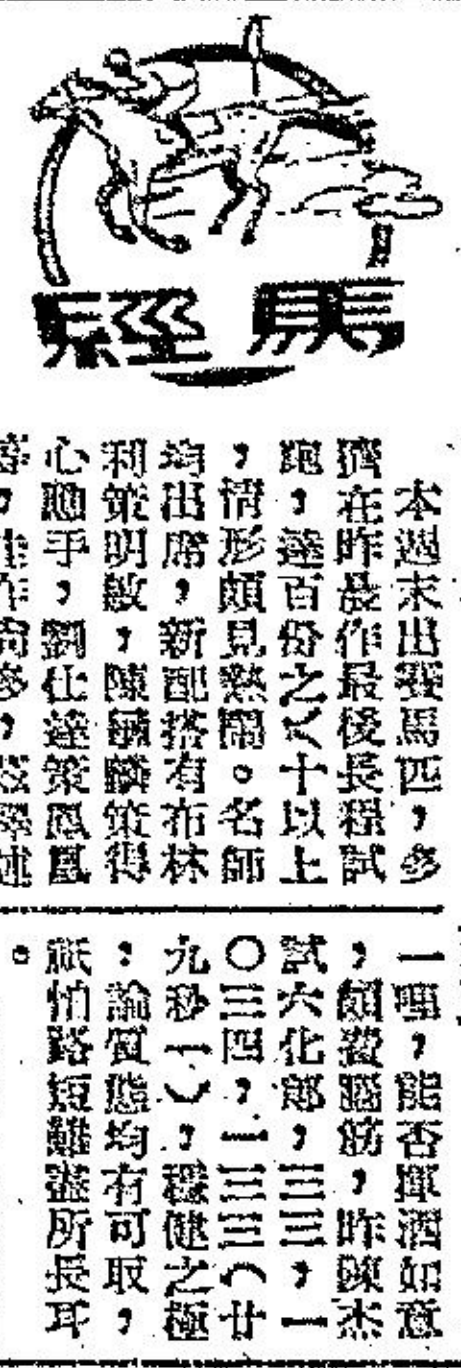 馬經
本週末出賽馬匹，多
擠在昨晨作最後長程試
跑，達百份之八十以上
，情形頗見熱鬧。名師
均出席，新配搭有布林
利策明敏，陳毓麟策得
心應手，劉仕達策鳳凰
一哩，能否揮洒如意
，頗費腦筋，昨陳杰
試六化郎，三三，一
〇三四，一三三三（廿
九秒一），穩健之極
，論質態均有可取，
祇怕路短難盡所長耳
。